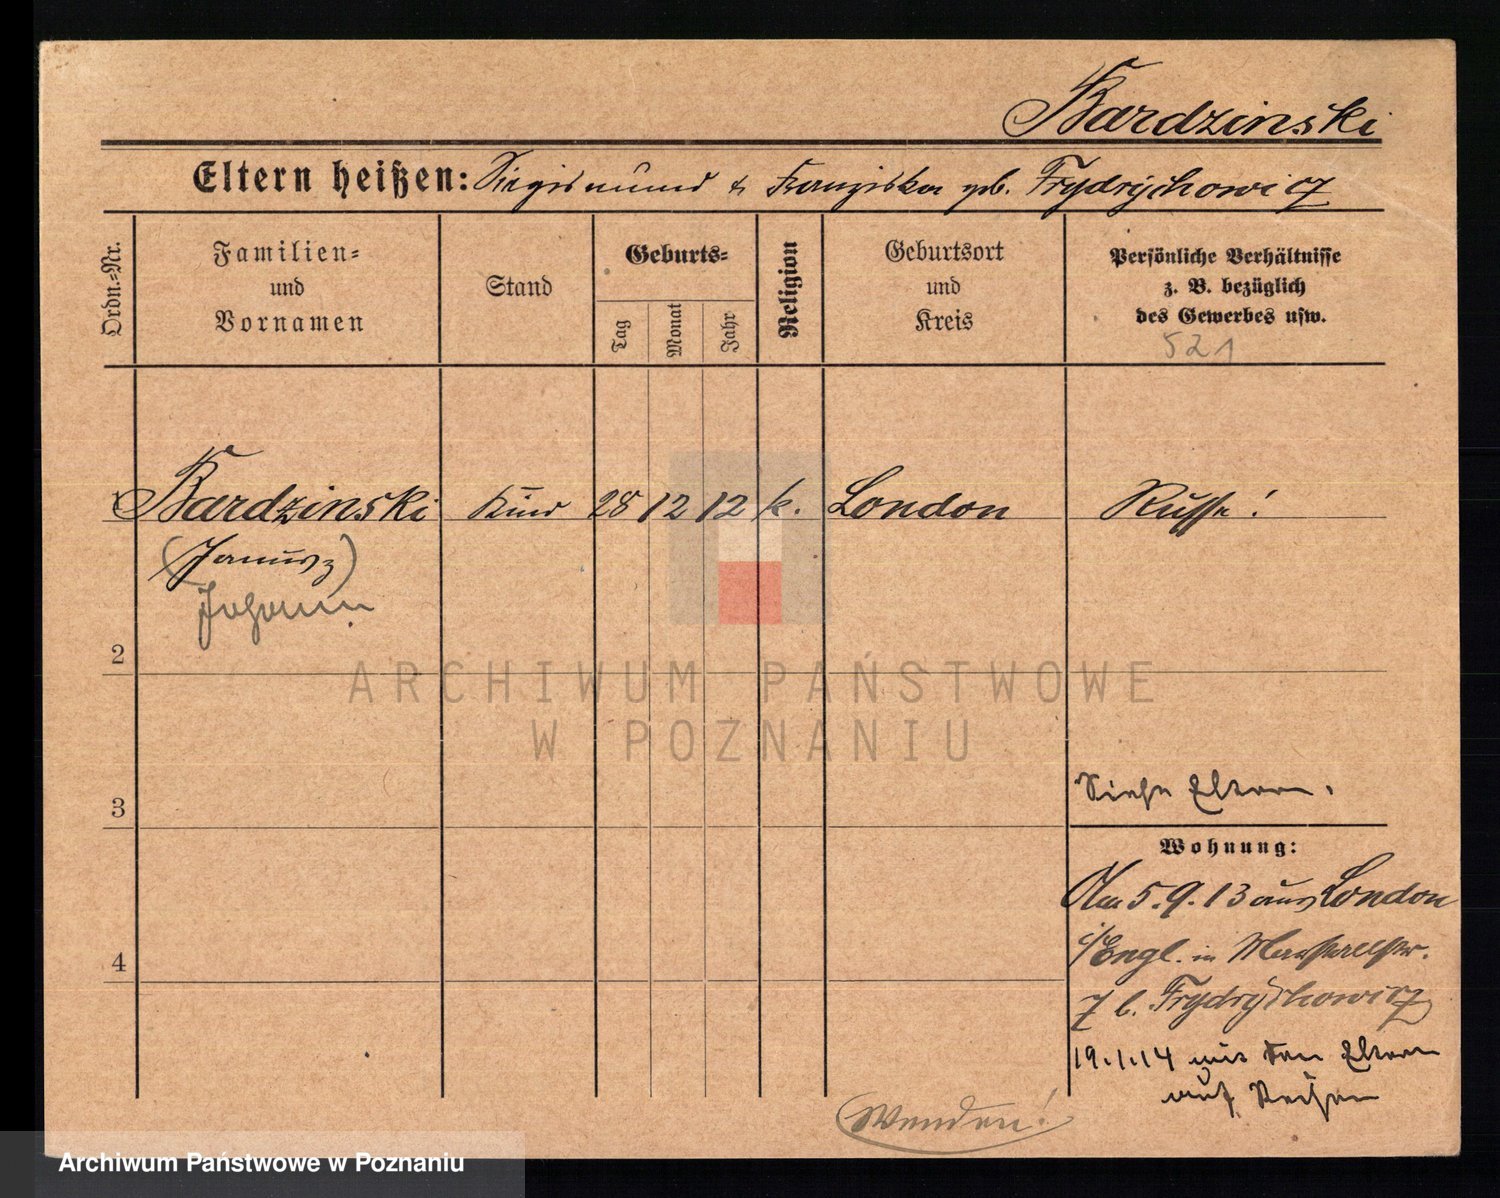 Bardzinski
Eltern heißen: Siegismund & Franziska geb. Frydrÿchowicz
Ordn.-Nr.
Familien-
und
Vornamen
Stand
Geburts-
Tag
Monat
Jahr
Religion
Geburtsort
und
Kreis
Persönliche Verhältnisse
z. B. bezüglich
des Gewerbes usw.
521
Bardzinski Kind 28 12 12 k. London Russe!
(Janusz)
Johann
2
ARCHIWUM PAŃSTWOWE
W POZNANIU
3
Siehe Eltern.
Wohnung:
Am 5.9.13 aus London
i/Engl. in Marstallstr.
7 b. Frydrÿchowicz
4
19.1.14 mit den Eltern
auf Reisen
Wenden!
Archiwum Państwowe w Poznaniu